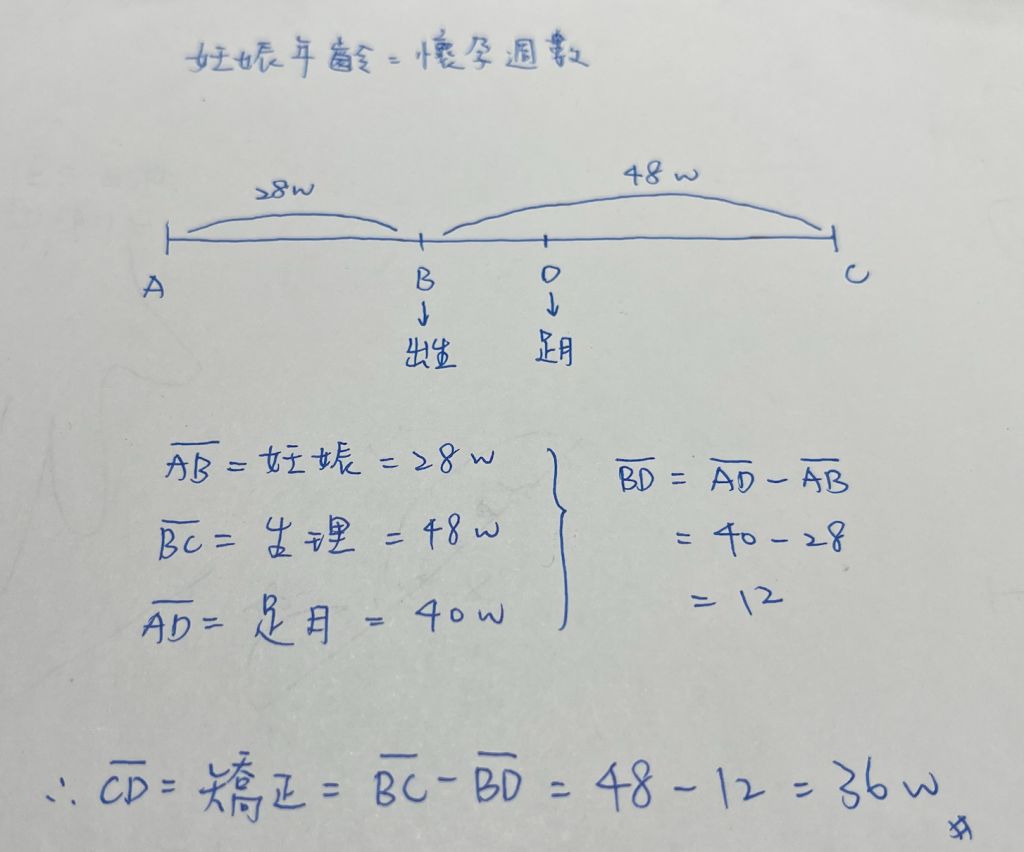 妊娠年齡=懷孕週數
28w 48w
A B D C
↓ ↓
出生 足月
AB = 妊娠 = 28w
BC = 生理 = 48w
AD = 足月 = 40w
BD = AD - AB
= 40 - 28
= 12
∴ CD = 矯正 = BC - BD = 48 - 12 = 36w